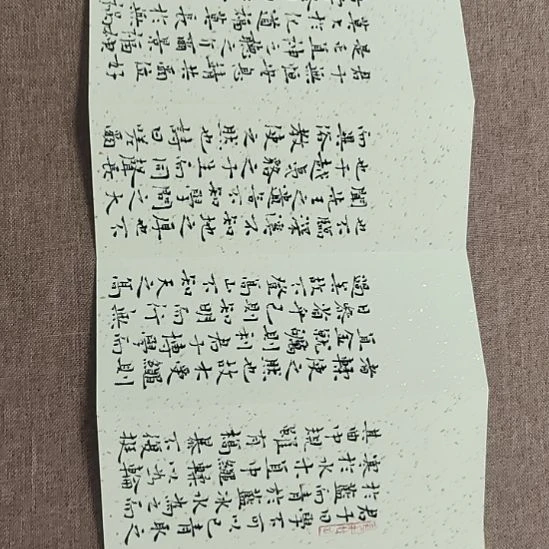 君子曰學不可以已青取之
於藍而青於藍冰水為之而
寒於水木直中繩輮以為輪
其曲中規雖有槁暴不復挺
者輮使之然也故木受繩則
直金就礪則利君子博學而
日參省乎己則知明而行無
過矣故不登高山不知天之高
也不臨深溪不知地之厚也不
聞先王之遺言不知學問之大
也干越夷貉之子生而同聲長
而異俗教使之然也詩曰嗟爾
君子無恆安息靖共爾位好
是正直神之聽之介爾景福神
莫大於化道福莫長於無禍